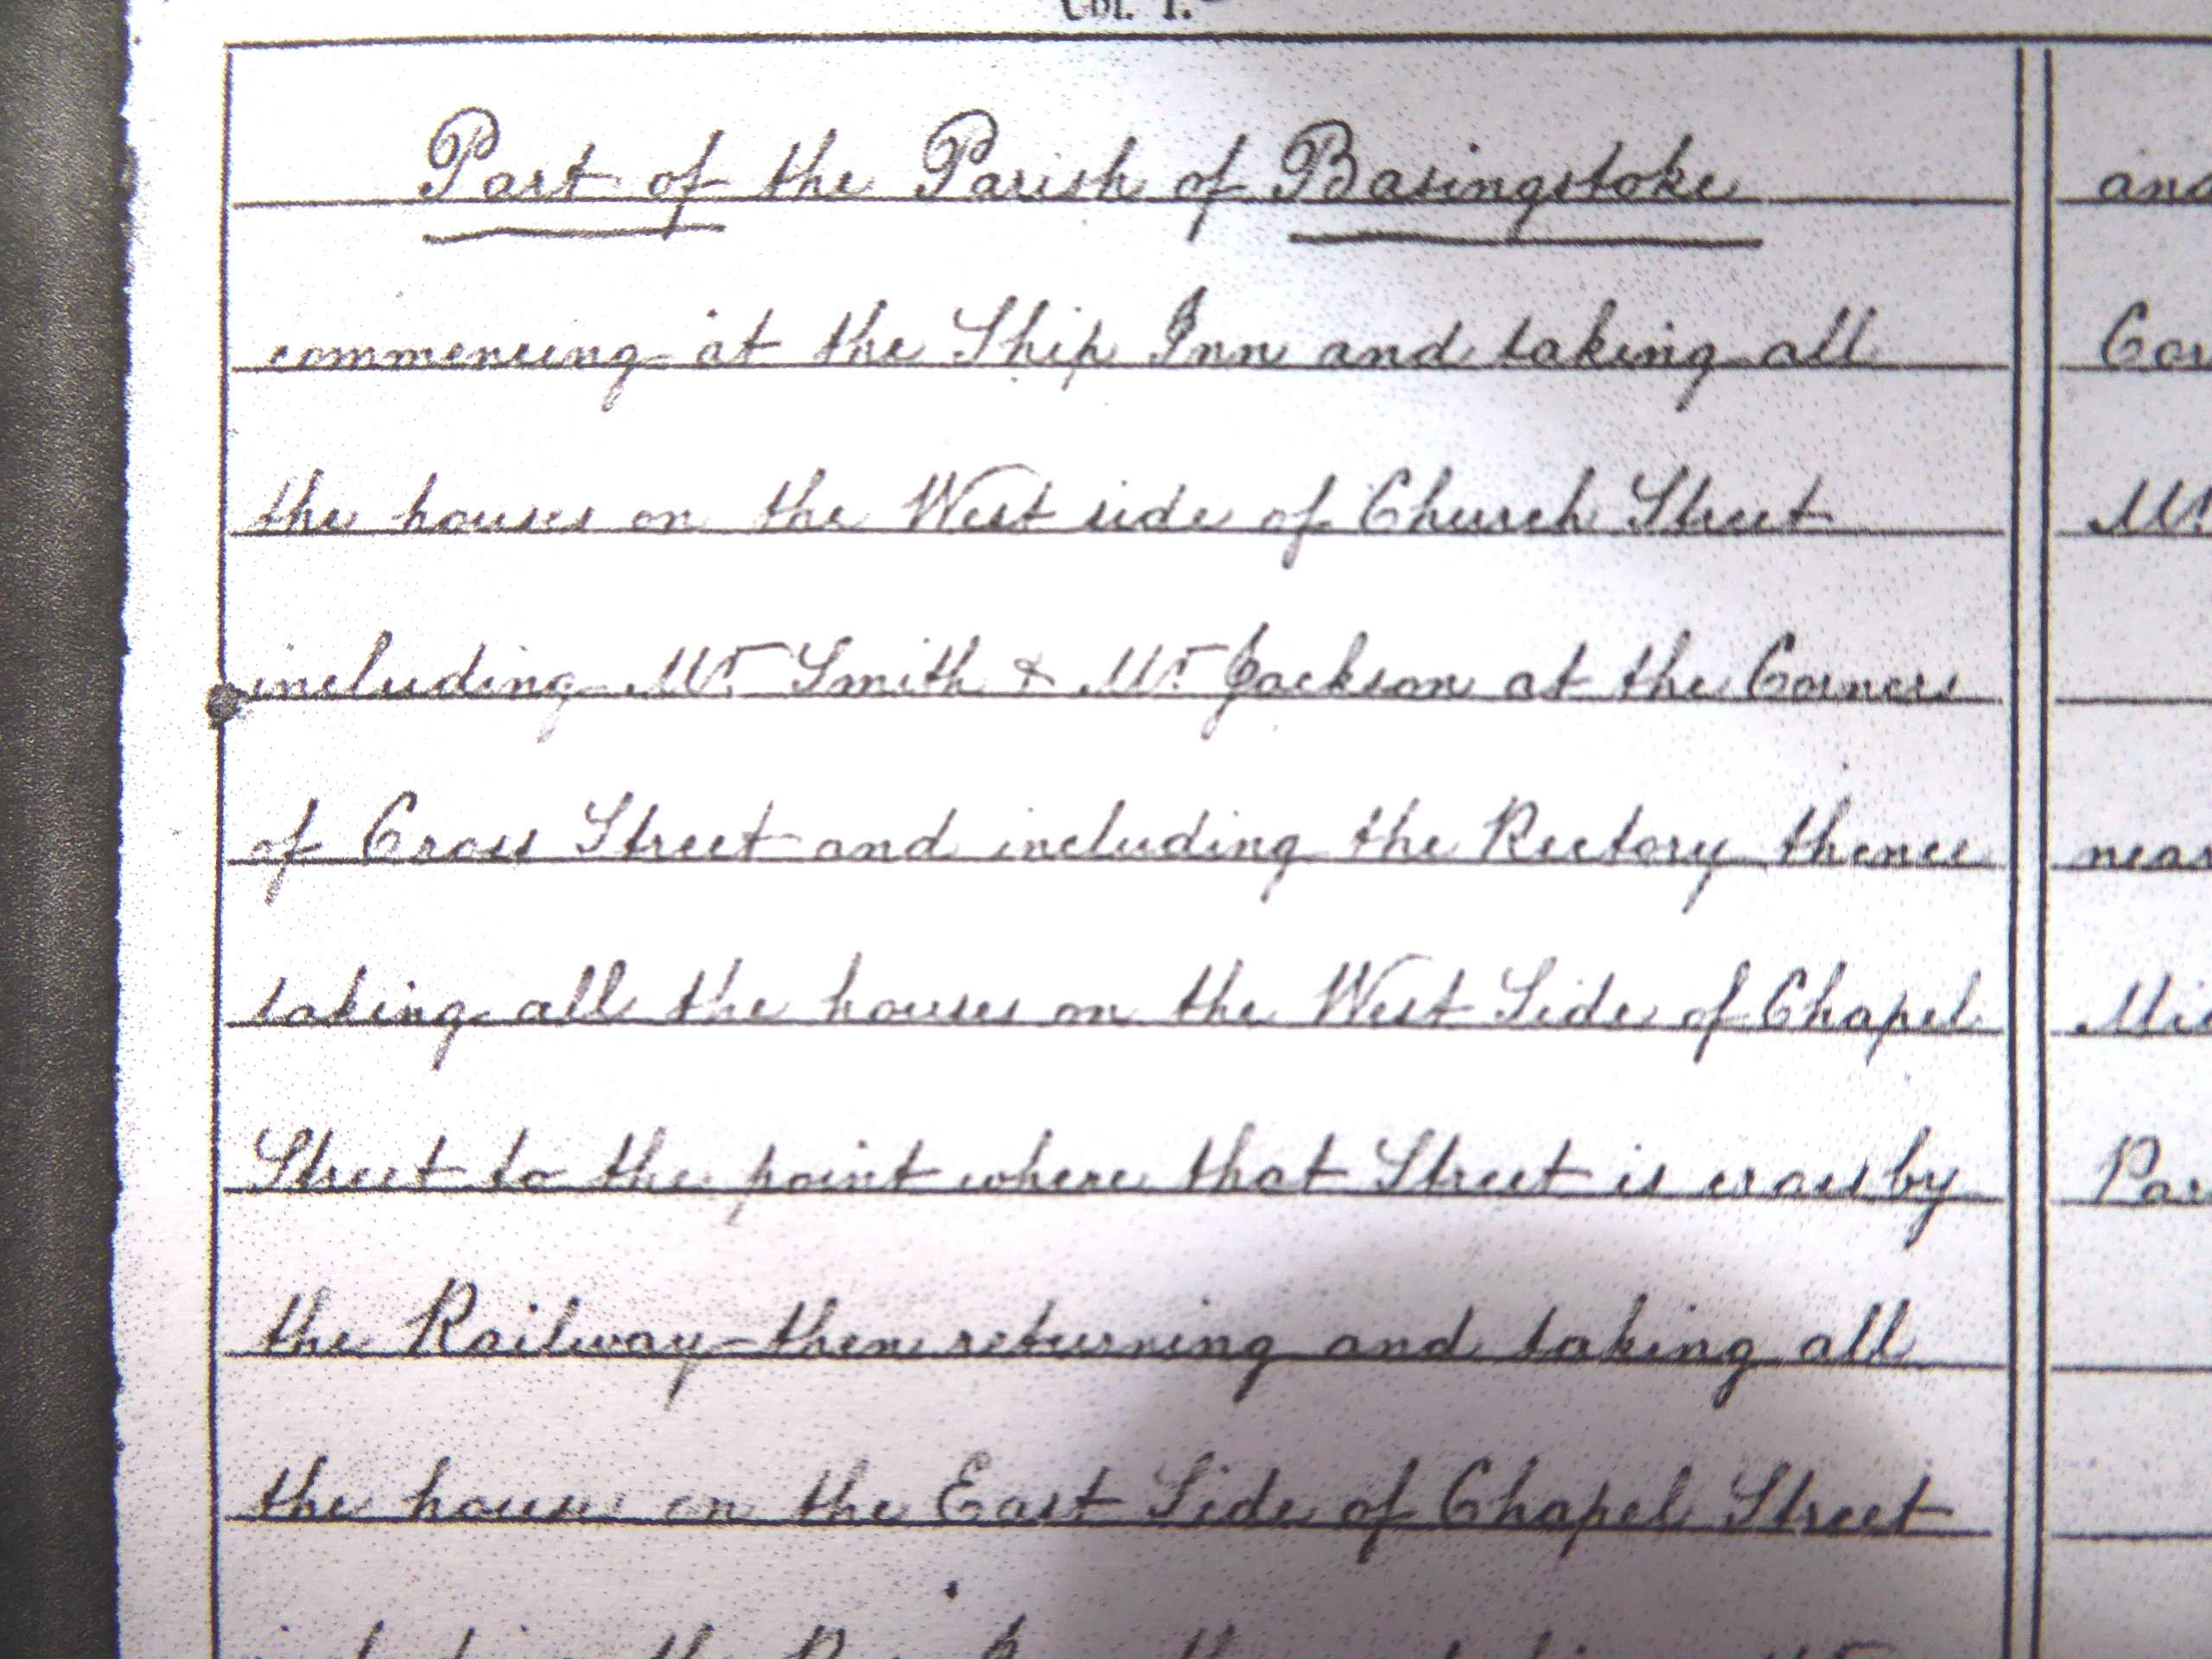 Col. 1.
Part of the Parish of Basingstoke
commencing at the Ship Inn and taking all
the houses on the West side of Church Street
including Mr Smith & Mr Jackson at the Corners
of Cross Street and including the Rectory thence
taking all the houses on the West Side of Chapel
Street to the point where that Street is cross by
the Railway - then returning and taking all
the houses on the East Side of Chapel Street
including the
and
Cor
Mr
near
Par